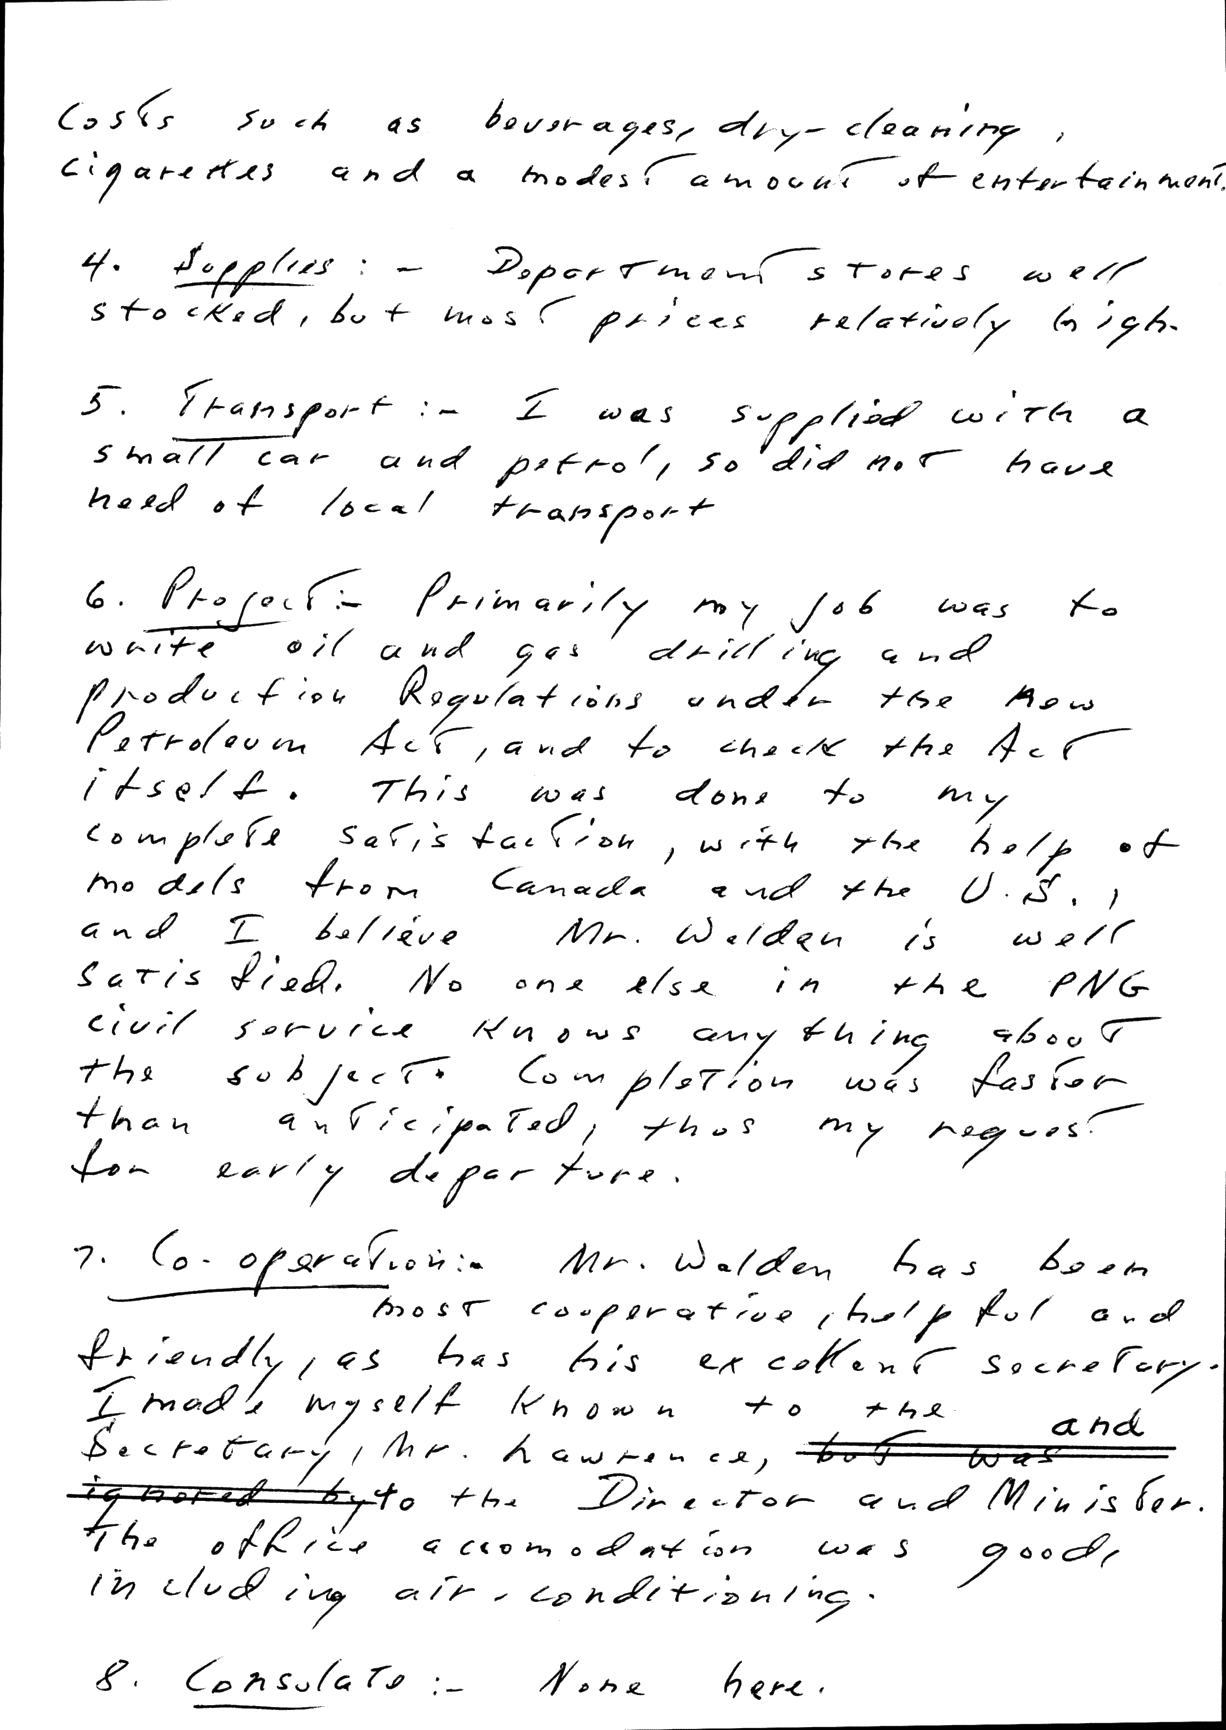 costs such as beverages, dry-cleaning,
cigarettes and a modest amount of entertainment.
4. Supplies :- Department stores well
stocked, but most prices relatively high.
5. Transport :- I was supplied with a
small car and petrol, so did not have
need of local transport
6. Project :- Primarily my job was to
write oil and gas drilling and
production Regulations under the new
Petroleum Act, and to check the Act
itself. This was done to my
complete satisfaction, with the help of
models from Canada and the U.S.,
and I believe Mr. Walden is well
satisfied. No one else in the PNG
civil service knows anything about
the subject. Completion was faster
than anticipated, thus my request
for early departure.
7. Co-operation :- Mr. Walden has been
most cooperative, helpful and
friendly, as has his excellent secretary.
I made myself known to the
and
Secretary, Mr. Lawrence, but was
ignored by to the Director and Minister.
The office accomodation was good,
including air-conditioning.
8. Consulate :- None here.